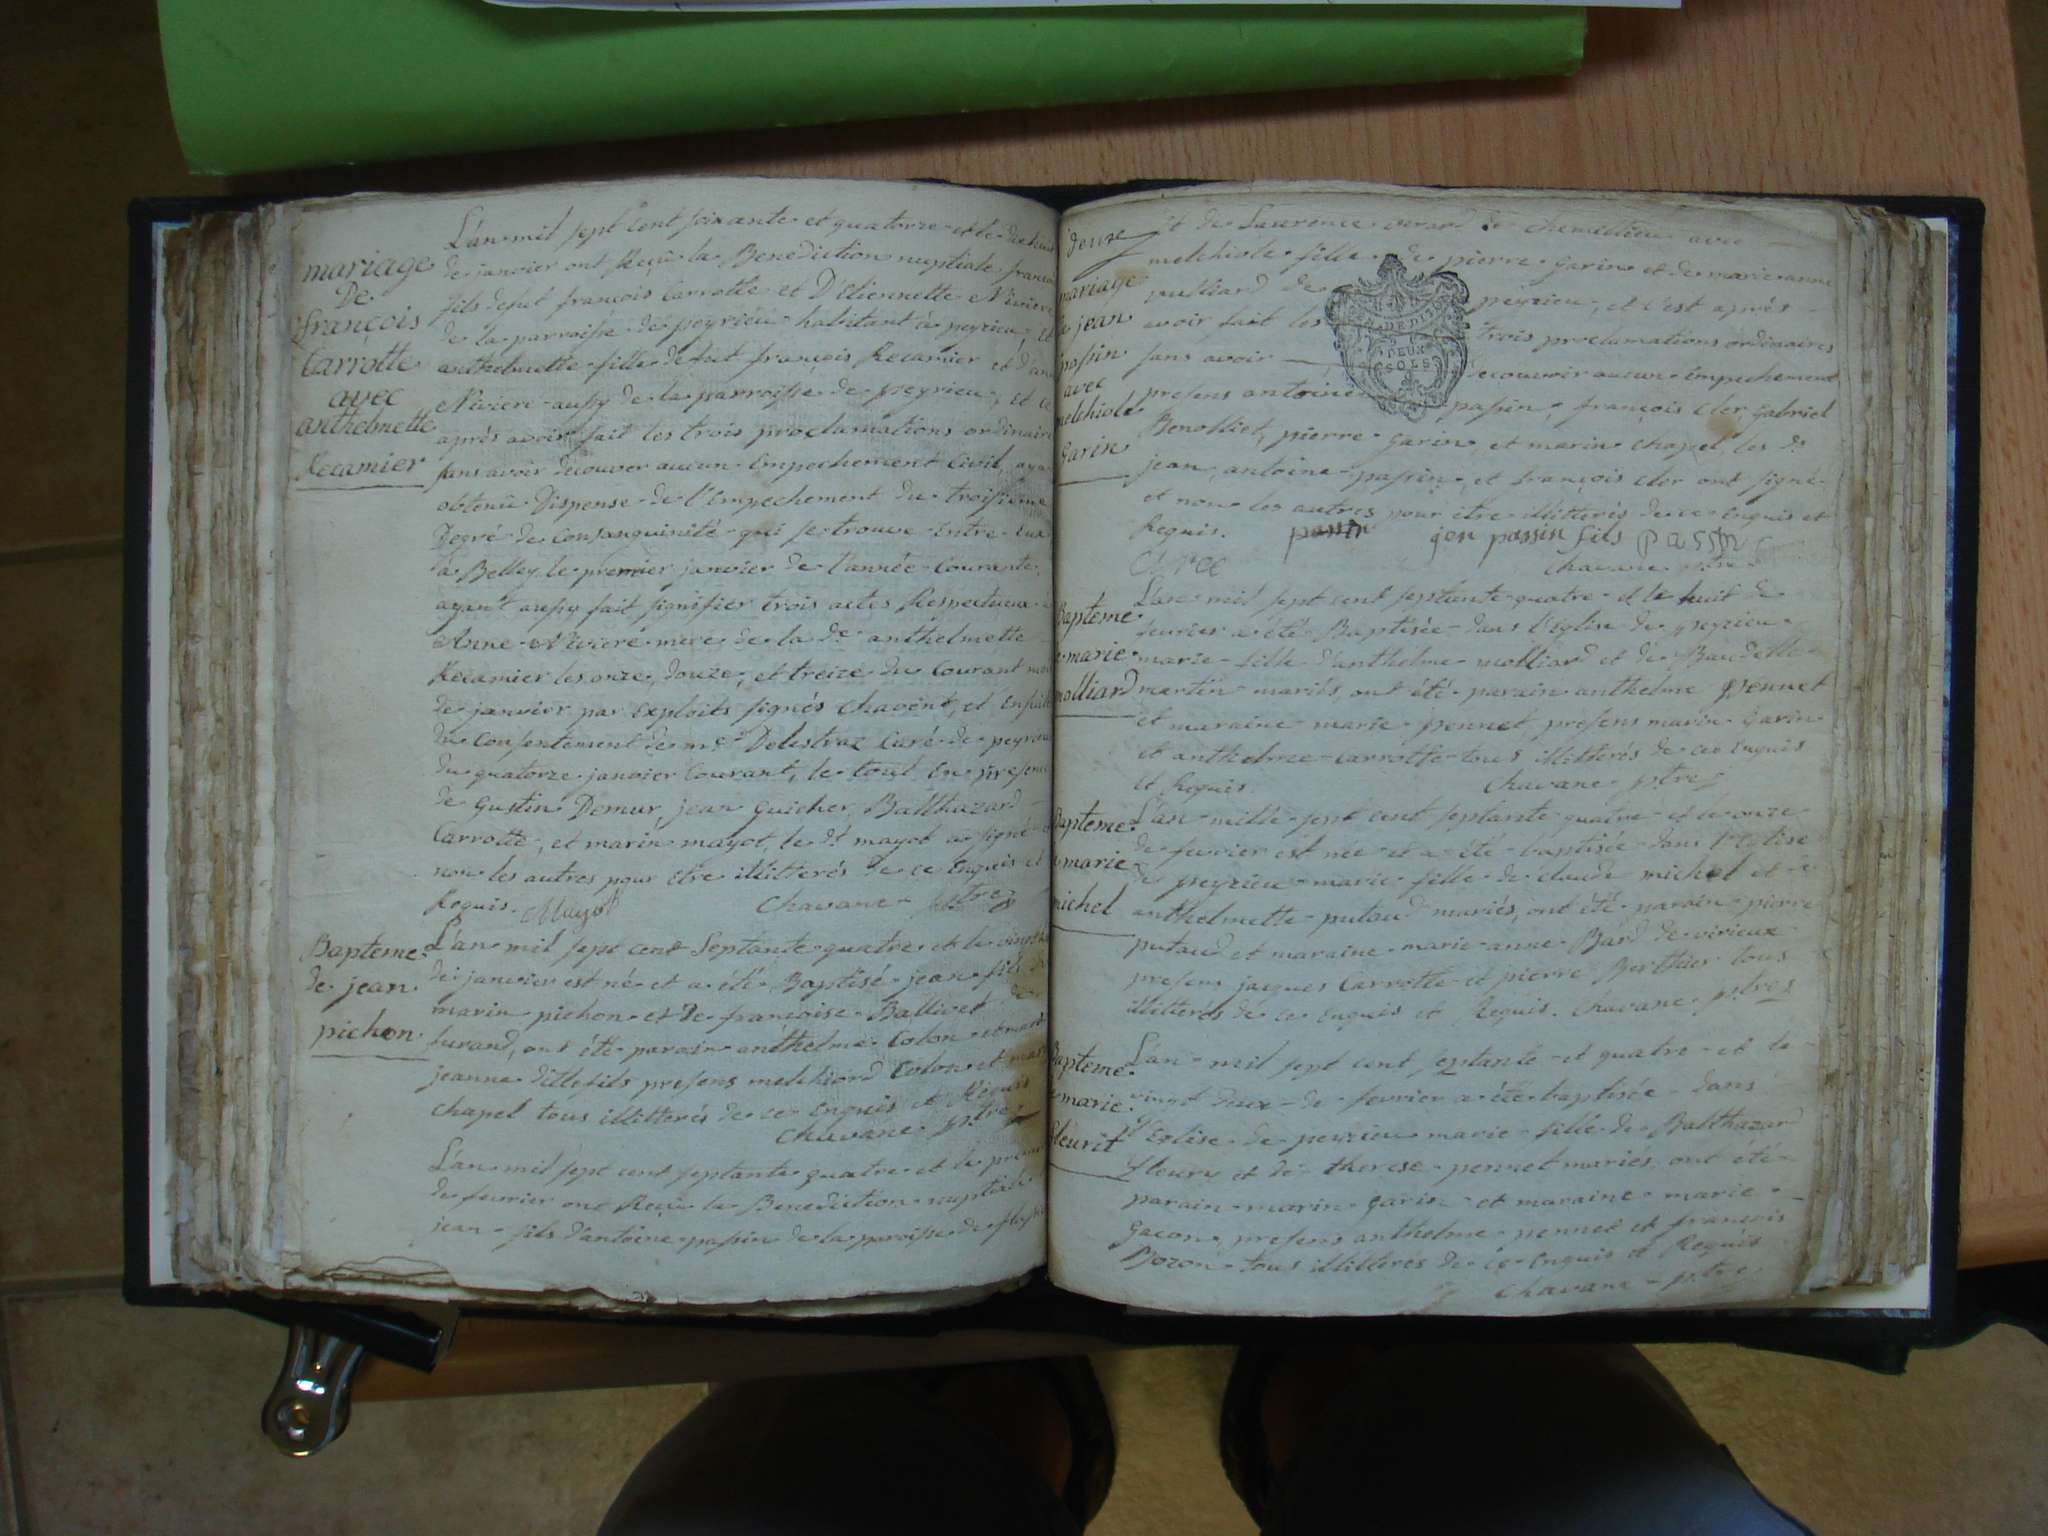 mariage
De
françois
Carrotte
avec
anthelmette
Recamier
L'an mil sept cent soixante et quatorze et le dixhuit
de janvier ont Reçu la Benediction nuptiale françois
fils defut françois Carrotte et D'Etiennette Niviere
de la parroisse de peyrieu habitant à peyrieu, et
anthelmette fille defut françois Recamier et d'anne
Niviere aussy de la parroisse de peyrieu, et ce
après avoir fait les trois proclamations ordinaires
sans avoir decouver aucun Empechement Civil, ayant
obtenu Dispense de l'Empechement du troisieme
Degré de Consanguinité qui se trouve Entre Eux
à Belley le premier janvier de l'année Courante,
ayant aussy fait signifier trois actes Respectueux à
Anne Niviere mere de la de anthelmette
Recamier les onze, douze, et treize du Courant mois
de janvier par Exploits signés Chavent, et Ensuite
du Consentement de mre Delestraz Curé de peyrieu
du quatorze janvier Courant, le tout En presence
de gustin Demur, jean guicher, Balthazard
Carrotte, et marin mayot, le dt mayot a signé et
non les autres pour Etre illitterés de ce Enquis et
Requis. Mayot Chavane ptre
Bapteme
de jean
pichon
L'an mil sept cent Septante quatre et le vingt
de janvier est né et a été Baptisé jean fils de
marin pichon et de françoise Ballivet de
furand, ont été parain anthelme Colon et maraine
jeanne Dillefils presens melchiord Colon et marin
chapel tous illitterés de ce Enquis et Requis
Chavane ptre
L'an mil sept cent septante quatre et le premier
de fevrier ont Reçu la Benediction nuptiale
jean fils d'antoine passin de la paroisse de
deuze
mariage
de jean
passin
avec
melchiole
Garin
et de Laurence verard de chemillieu avec
melchiole fille de pierre garin et de marie anne
de peyrieu, et c'est après
avoir fait les trois proclamations ordinaires
sans avoir decouvoir aucun Empechement
presens antoine passin, françois Cler, Gabriel
Benolliet, pierre garin, et marin chapel, les dt
jean, antoine passin, et françois Cler ont signé
et non les autres pour etre illitterés de ce Enquis et
Requis. passin jen passin fils passin
Chavane ptre
DEUX
SOLS
Bapteme
de marie
molliard
L'an mil sept cent septante quatre et le huit de
fevrier a été Baptisée dans l'Eglise de peyrieu
marie fille d'anthelme molliard et de Baudelle
martin mariés, ont été parain anthelme pennet
et maraine marie pennet, presens marin garin
et anthelme carrotte tous illitterés de ce Enquis
et Requis. Chavane ptre
Bapteme
de marie
michel
L'an mille sept cent septante quatre et le onze
de fevrier est née et a été baptisée dans l'Eglise
de peyrieu marie fille de claude michel et d'
anthelmette putaud mariés, ont été parain pierre
putaud et maraine marie anne Bard de virieux
presens jacques Carrotte et pierre Berthier tous
illitterés de ce Enquis et Requis. Chavane ptre
Bapteme
de marie
fleurit
L'an mil sept cent septante et quatre et le
vingt Deux de fevrier a été baptisée dans
l'Eglise de peyrieu marie fille de Balthazar
fleury et de therese pennet mariés, ont été
parain marin garin et maraine marie
Gacon, presens anthelme pennet et françois
Bozon tous illitterés de ce Enquis et Requis
Chavane ptre